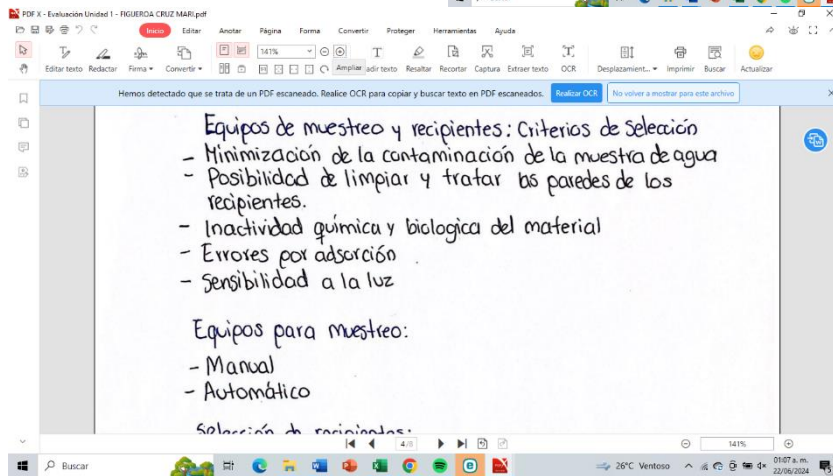 PDF X - Evaluación Unidad 1 - FIGUEROA CRUZ MARI.pdf
Inicio Editar Anotar Página Forma Convertir Proteger Herramientas Ayuda
141%
Editar texto Redactar Firma Convertir Ampliar adir texto Resaltar Recortar Captura Extraer texto OCR Desplazament... Imprimir Buscar Actualizar
Hemos detectado que se trata de un PDF escaneado. Realice OCR para copiar y buscar texto en PDF escaneados. Realizar OCR No volver a mostrar para este archivo
Equipos de muestreo y recipientes: Criterios de Selección
- Minimización de la contaminación de la muestra de agua
- Posibilidad de limpiar y tratar las paredes de los
recipientes.
- Inactividad química y biologica del material
- Errores por adsorción
- Sensibilidad a la luz
Equipos para muestreo:
- Manual
- Automático
Selección de recipientes:
4/8
141%
Buscar
26°C Ventoso
01:07 a. m.
22/06/2024